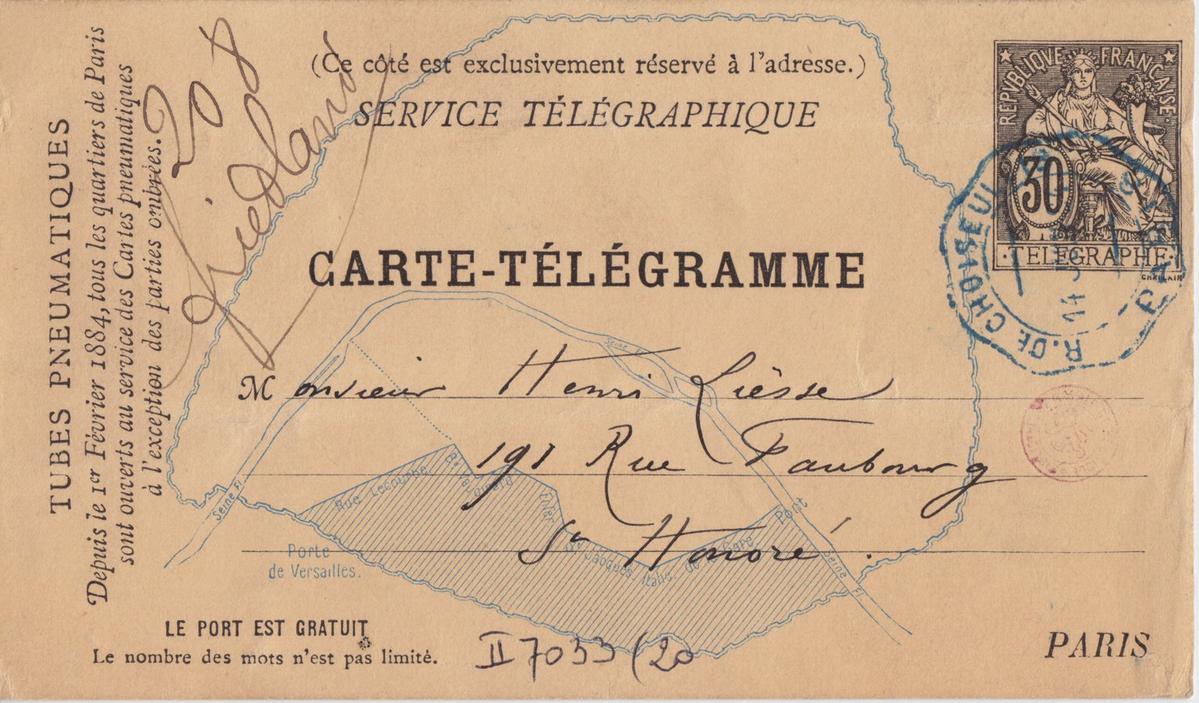 (Ce côté est exclusivement réservé à l'adresse.)
SERVICE TÉLÉGRAPHIQUE
CARTE-TÉLÉGRAMME
RÉPUBLIQUE FRANÇAISE
30
TÉLÉGRAPHE
CHAPLAIN
R. DE CHOISEUL
PARIS
14
TUBES PNEUMATIQUES
Depuis le 1er Février 1884, tous les quartiers de Paris
sont ouverts au service des Cartes pneumatiques
à l'exception des parties ombrées.
208
Friedland
Monsieur Henri Lièsse
191 Rue Faubourg
St Honoré.
Seine
Seine Fl
Rue Lecourbe
Porte
de Versailles.
Italie.
de la Gare.
Pont
Seine Fl
LE PORT EST GRATUIT
Le nombre des mots n'est pas limité.
II 7033/20
PARIS